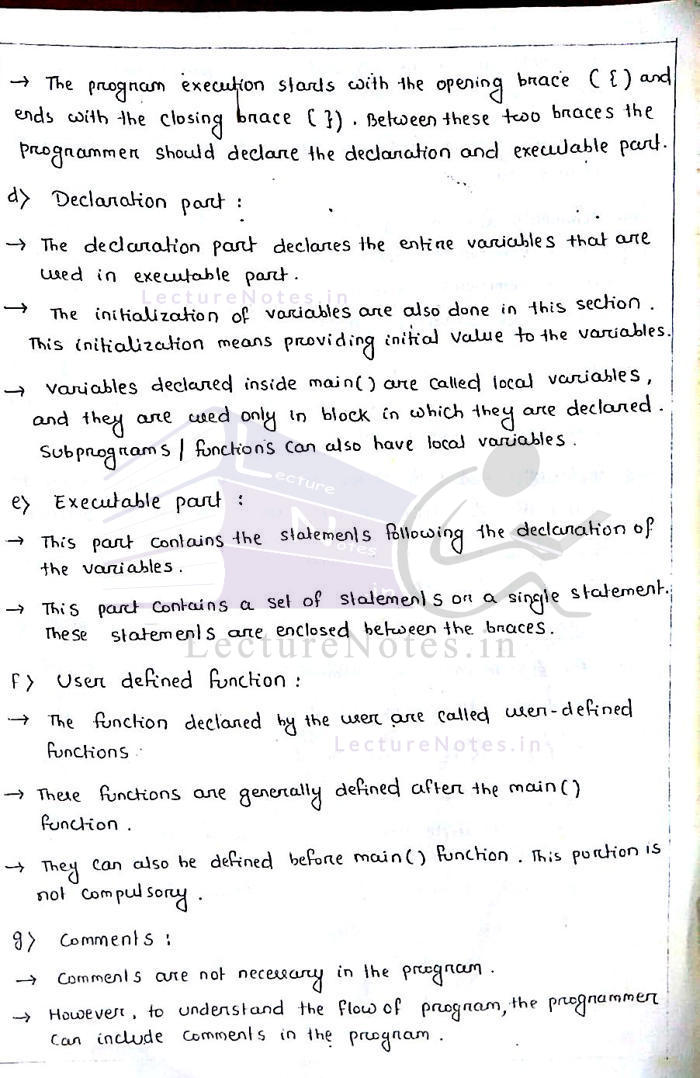 → The program execution starts with the opening brace ( { ) and
ends with the closing brace ( } ) . Between these two braces the
programmer should declare the declaration and executable part.
d> Declaration part :
→ The declaration part declares the entire variables that are
used in executable part .
LectureNotes.in
→ The initialization of variables are also done in this section .
This initialization means providing initial value to the variables.
→ Variables declared inside main( ) are called local variables ,
and they are used only in block in which they are declared .
Subprograms / functions can also have local variables .
Lecture
Notes
.in
e> Executable part :
→ This part contains the statements following the declaration of
the variables .
→ This part contains a set of statements or a single statement.
These statements are enclosed between the braces.
LectureNotes.in
F > User defined function :
→ The function declared by the user are called user-defined
functions
LectureNotes.in
→ These functions are generally defined after the main( )
function .
→ They can also be defined before main( ) function . This portion is
not compulsory .
g> Comments :
→ Comments are not necessary in the program .
→ However, to understand the flow of program, the programmer
can include comments in the program .